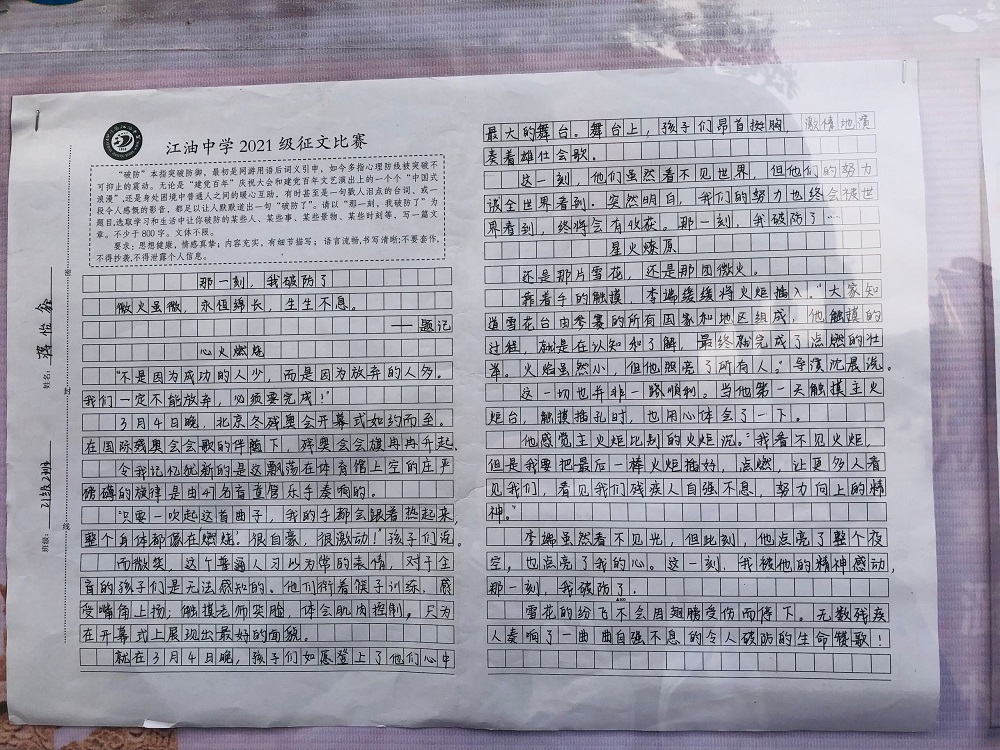 江油中学2021级征文比赛
“破防”本指突破防御。最初是网游用语后词义引申，如今多指心理防线被突破不
可抑止的震动。无论是“建党百年”庆祝大会和建党百年文艺演出上的一个个“中国式
浪漫”,还是身处困境中普通人之间的暖心互助，有时甚至是一句戳人泪点的台词、或一
段令人感慨的影音，都足以让人默默道出一句“破防了”。请以“那一刻，我破防了”为
题目,选取学习和生活中让你破防的某些人、某些事、某些景物、某些时刻等，写一篇文
章。不少于800字。文体不限。
要求：思想健康，情感真挚；内容充实，有细节描写；语言流畅,书写清晰;不要套作,
不得抄袭,不得泄露个人信息。
姓名：
班级：21级2班
密
封
线
那一刻，我破防了
微火虽微，永恒绵长，生生不息。
——题记
心火燃烧
“不是因为成功的人少，而是因为放弃的人多。
我们一定不能放弃，必须要完成！”
3月4日晚，北京冬残奥会开幕式如约而至。
在国际残奥会会歌的伴随下，残奥会会旗冉冉升起。
令我记忆犹新的是这飘荡在体育馆上空的庄严
磅礴的旋律是由47名盲童管乐手奏响的。
“只要一吹起这首曲子，我的手都会跟着热起来，
整个身体都像在燃烧。很自豪，很激动！”孩子们说。
而微笑，这个普通人习以为常的表情，对于全
盲的孩子们是无法感知的。他们衔着筷子训练，感
受嘴角上扬；触摸老师笑脸，体会肌肉控制。只为
在开幕式上展现出最好的面貌。
就在3月4日晚，孩子们如愿登上了他们心中
最大的舞台。舞台上，孩子们昂首挺胸，激情地演
奏着雄壮会歌。
这一刻，他们虽然看不见世界，但他们的努力
被全世界看到。突然明白，我们的努力也终会被世
界看到，终将会有收获。那一刻，我破防了…
星火燎原
还是那片雪花，还是那团微火。
靠着手的触摸，李端缓缓将火炬插入。“大家知
道雪花台由参赛的所有国家和地区组成，他触摸的
过程，就是在认知和了解，最终就完成了点燃的壮
举。火焰虽然小，但他照亮了所有人。”导演沈晨说。
这一切也并非一路顺利。当他第一天触摸主火
炬台，触摸插孔时，也用心体会了一下。
他感觉主火炬比别的火炬沉。“我看不见火炬，
但是我要把最后一棒火炬插好，点燃，让更多人看
见我们，看见我们残疾人自强不息，努力向上的精
神。”
李端虽然看不见光，但此刻，他点亮了整个夜
空，也点亮了我的心。这一刻，我被他的精神感动，
那一刻，我破防了。
雪花的纷飞不会因翅膀受伤而停下。无数残疾
人奏响了一曲曲自强不息的令人破防的生命赞歌！